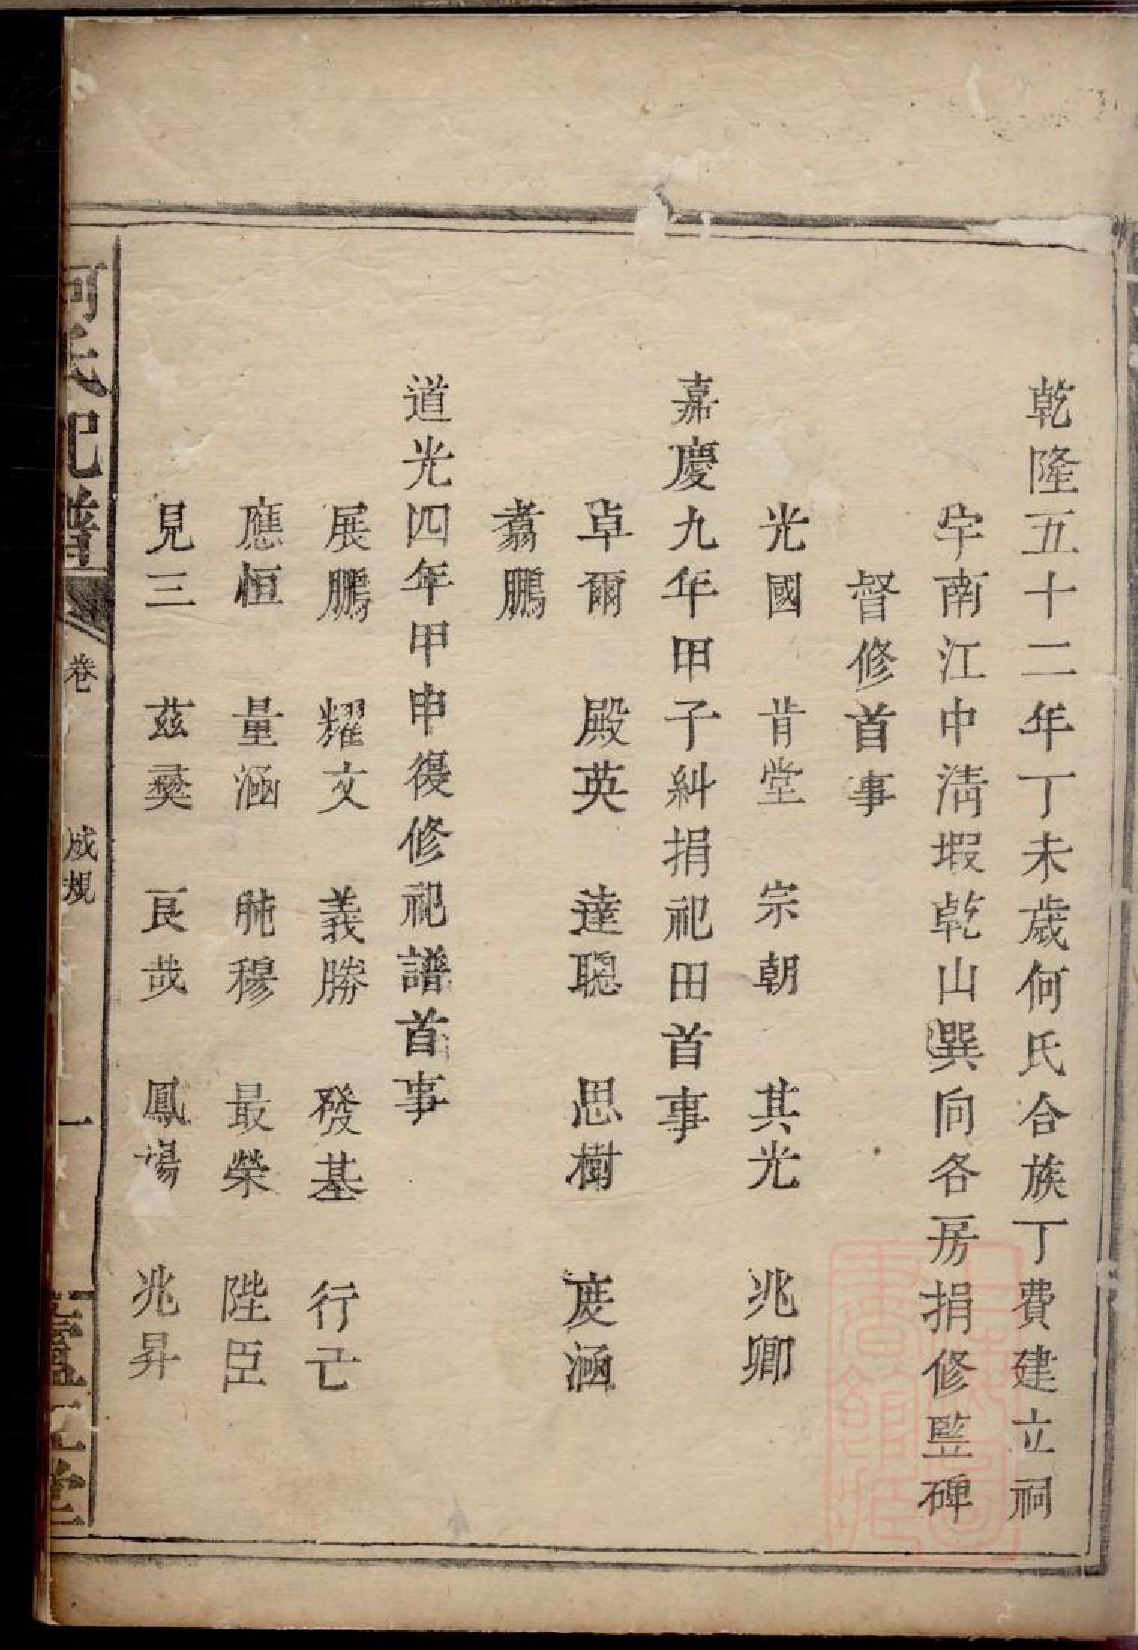 乾隆五十二年丁未歲何氏合族丁費建立祠
宇南江中淸塅乾山巽向各房捐修監碑
督修首事
光國 肯堂 宗朝 其光 兆卿
嘉慶九年甲子糾捐祀田首事
卓爾 殿英 達聰 思樹 度涵
翥鵬
道光四年甲申復修祀譜首事
展鵬 耀文 義勝 發基 行亡
應恒 量涵 肫穆 最榮 陛臣
見三 茲爕 良哉 鳳塲 兆昇
何氏祀譜 卷 成規 一 堂